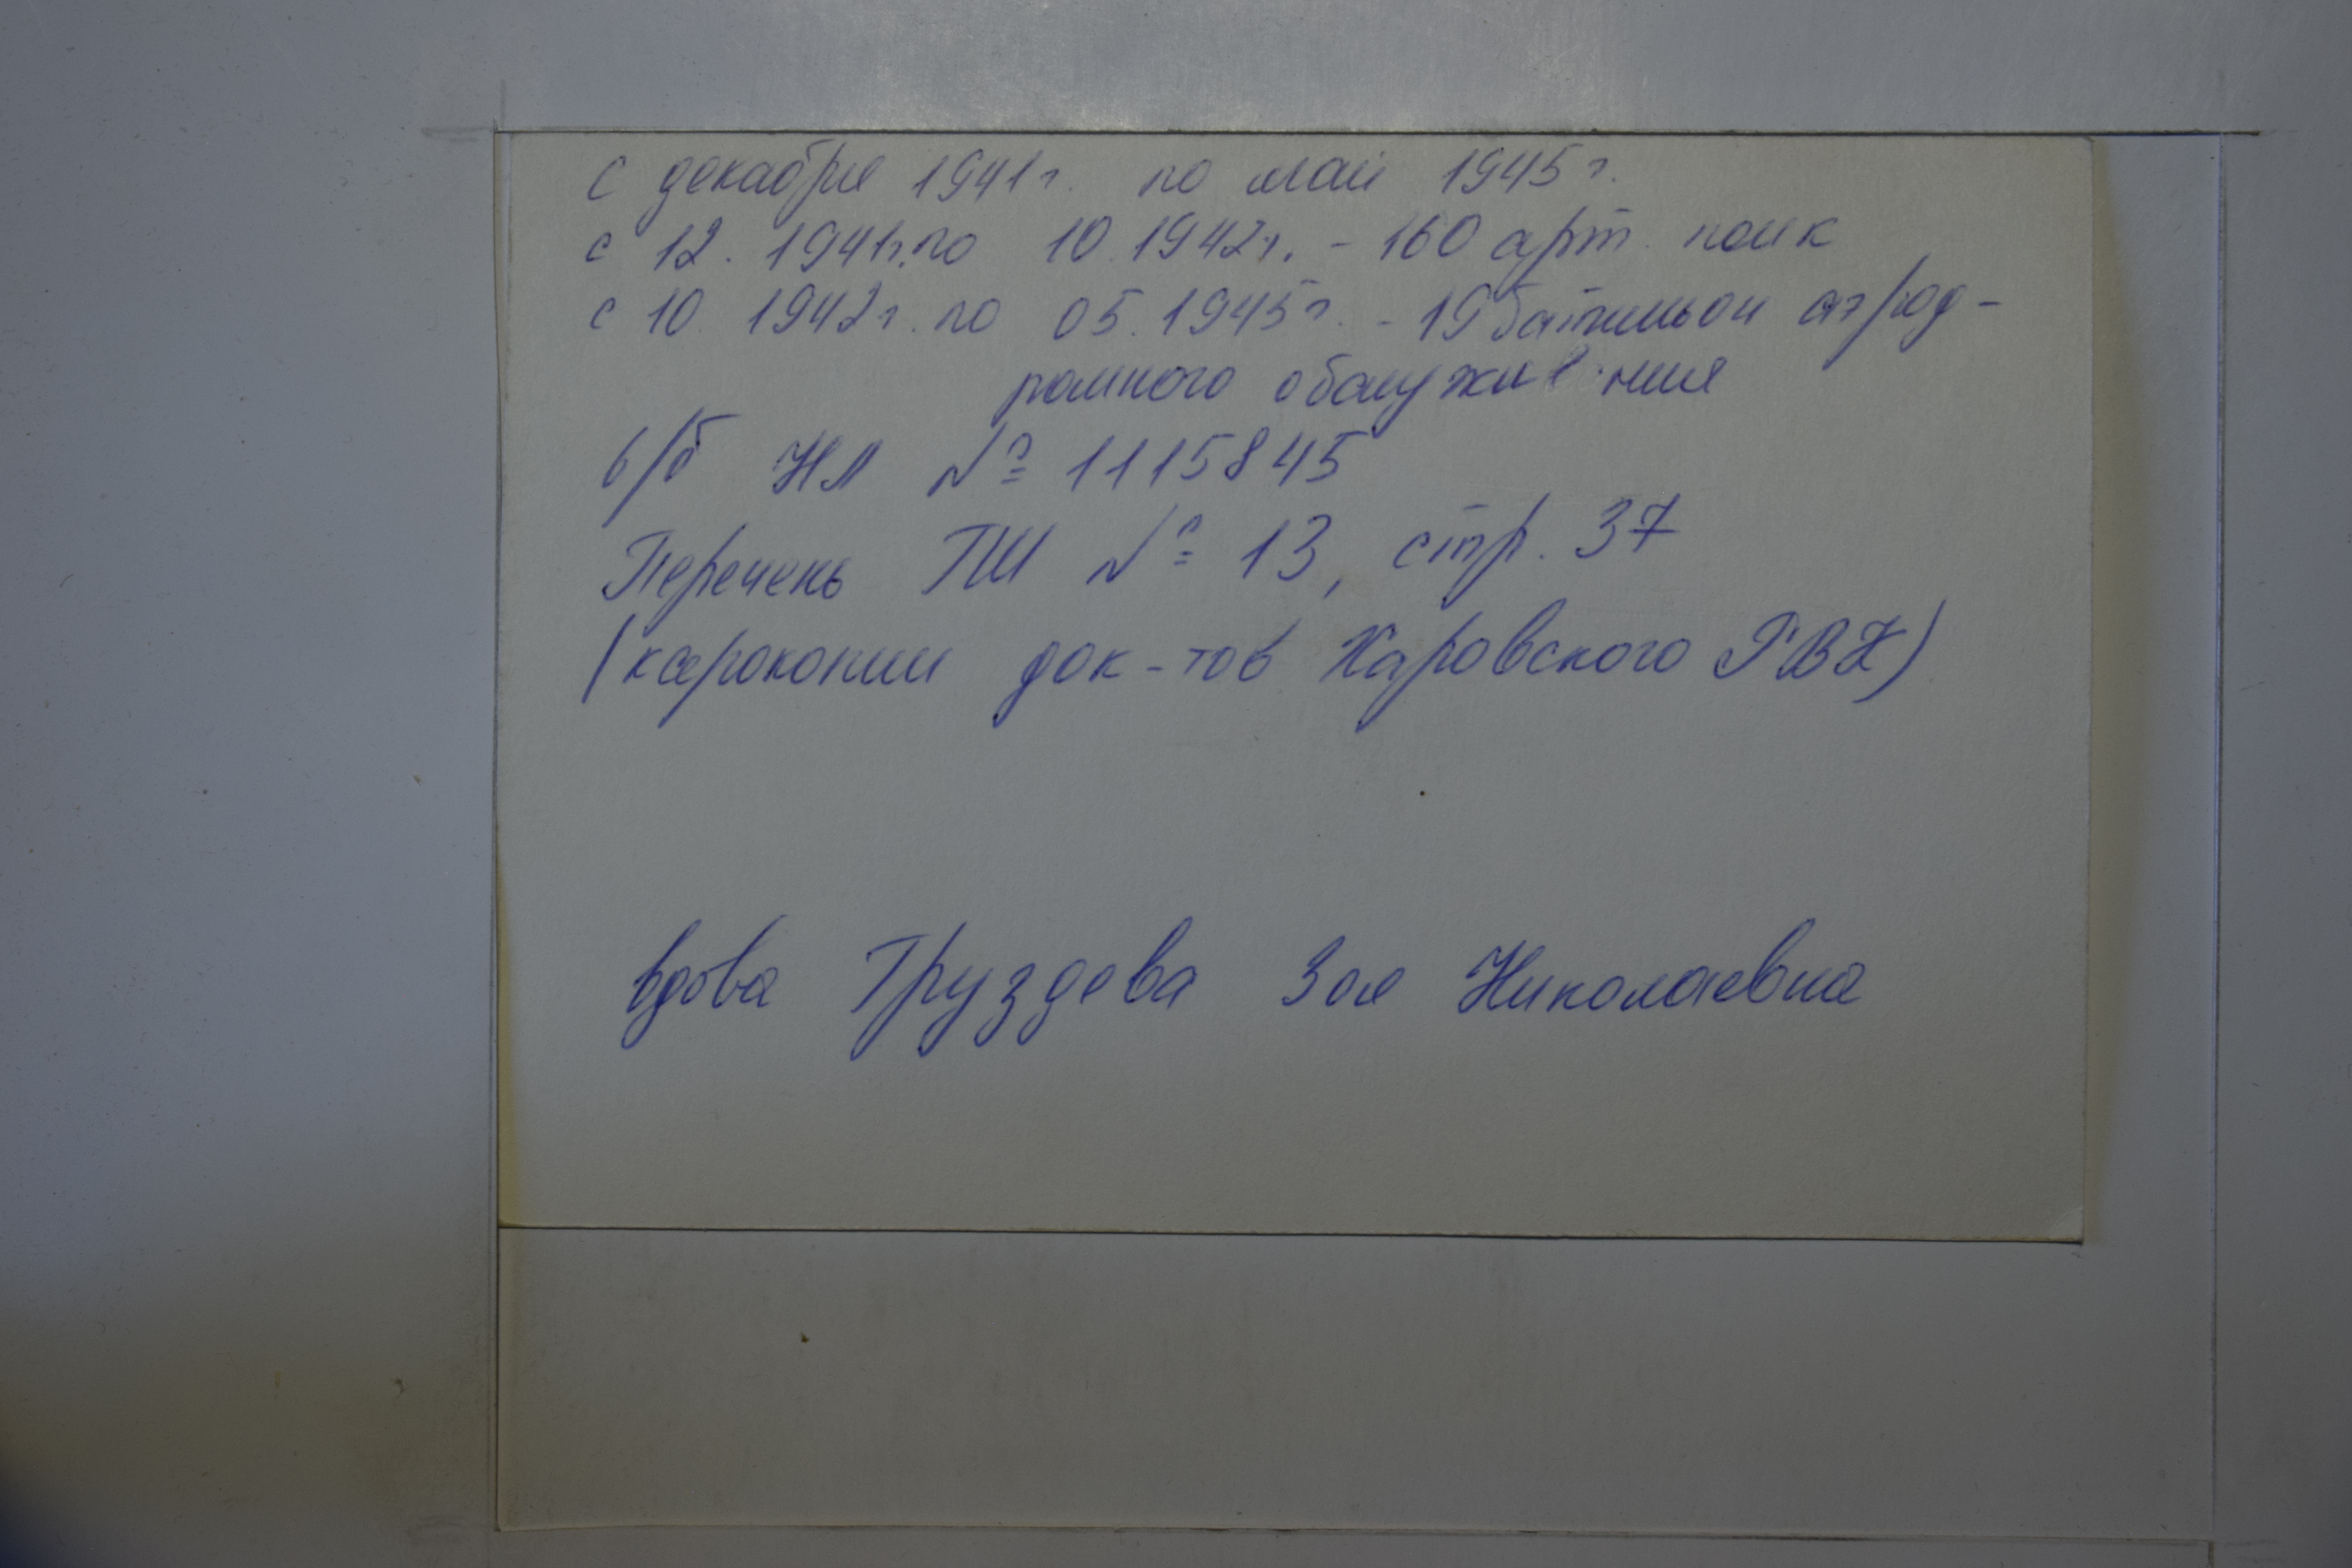 с декабря 1941г. по май 1945г.
с 12. 1941г. по 10.1942г. - 160 арт. полк
с 10. 1942г. по 05.1945г. - 19 батальон аэрод-
ромного обслуживания
в/б НМ № 1115845
Перечень ГШ № 13, стр. 37
(ксерокопии док-тов Харовского РВК)
вдова Груздева Зоя Николаевна